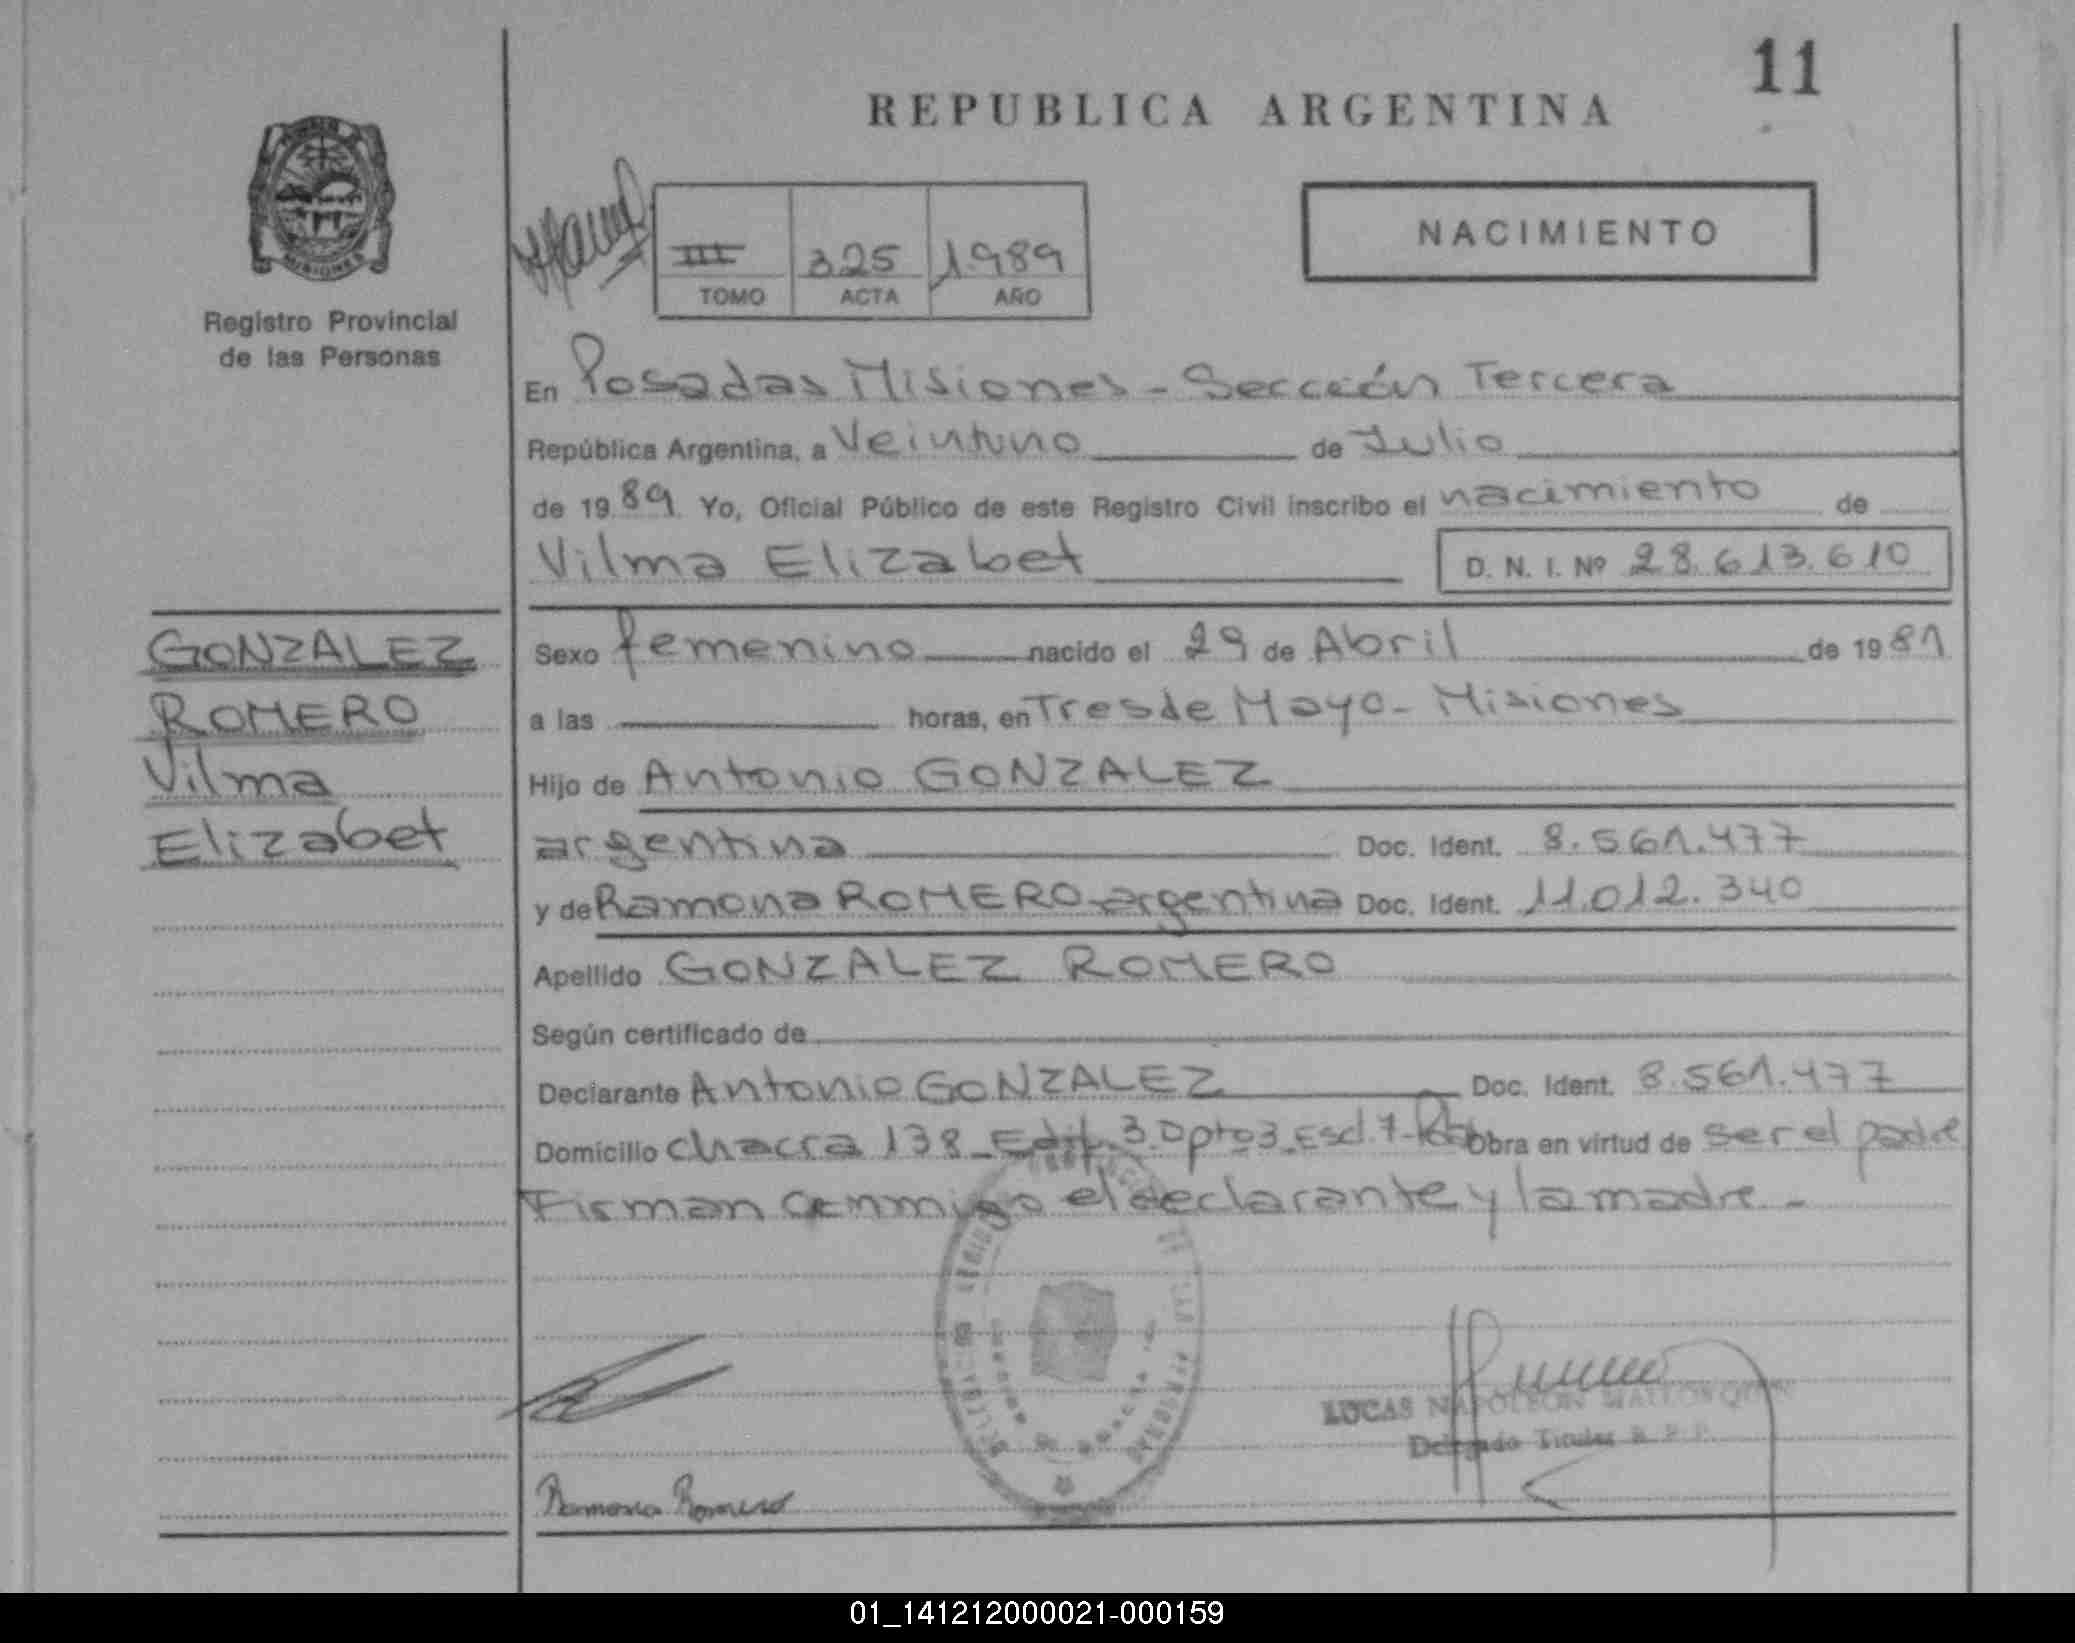 11
REPUBLICA ARGENTINA
NACIMIENTO
III 325 1.989
TOMO ACTA AÑO
MISIONES
Registro Provincial
de las Personas
En Posadas Misiones - Sección Tercera
República Argentina, a Veintuno de Julio
de 19 89 Yo, Oficial Público de este Registro Civil inscribo el nacimiento de
Vilma Elizabet D. N. I. Nº 28.613.610
GONZALEZ
ROMERO
Vilma
Elizabet
Sexo femenino nacido el 29 de Abril de 19 81
a las horas, en Tres de Mayo - Misiones
Hijo de Antonio GONZALEZ
argentina Doc. Ident. 8.561.477
y de Ramona ROMERO argentina Doc. Ident. 11.012.340
Apellido GONZALEZ ROMERO
Según certificado de
Declarante Antonio GONZALEZ Doc. Ident. 8.561.477
Domicilio Chacra 138 - Edif. 3. Dpto 3 Esc. 7 - Obra en virtud de ser el padre
Firman conmigo el declarante y la madre -
LUCAS NAPOLEON MALLORQUIN
Delegado Titular R. P. P.
Ramona Romero
01_141212000021-000159